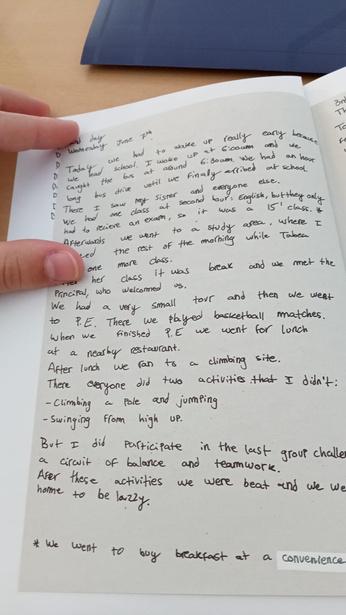 day
Wednesday June 7th
Today we had to wake up really early because
we had school. I woke up at 6:00am and we
caught the bus at around 6:30am. We had an hour
long bus drive until we finally arrived at school.
There I saw my sister and everyone else.
We had one class at second hour: English, but they only
had to recieve an exam, so it was a 15' class. *
Afterwards we went to a study area, where I
the rest of the morning while Tabea
one more class.
her class it was break and we met the
Principal, who welcomed us.
We had a very small tour and then we went
to P.E. There we played basketball matches.
When we finished P.E we went for lunch
at a nearby restaurant.
After lunch we ran to a climbing site.
There everyone did two activities that I didn't:
- Climbing a pole and jumping
- Swinging from high up.
But I did participate in the last group
a circuit of balance and teamwork.
Afer these activities we were beat and we
home to be lazzy.
* We went to buy breakfast at a convenience